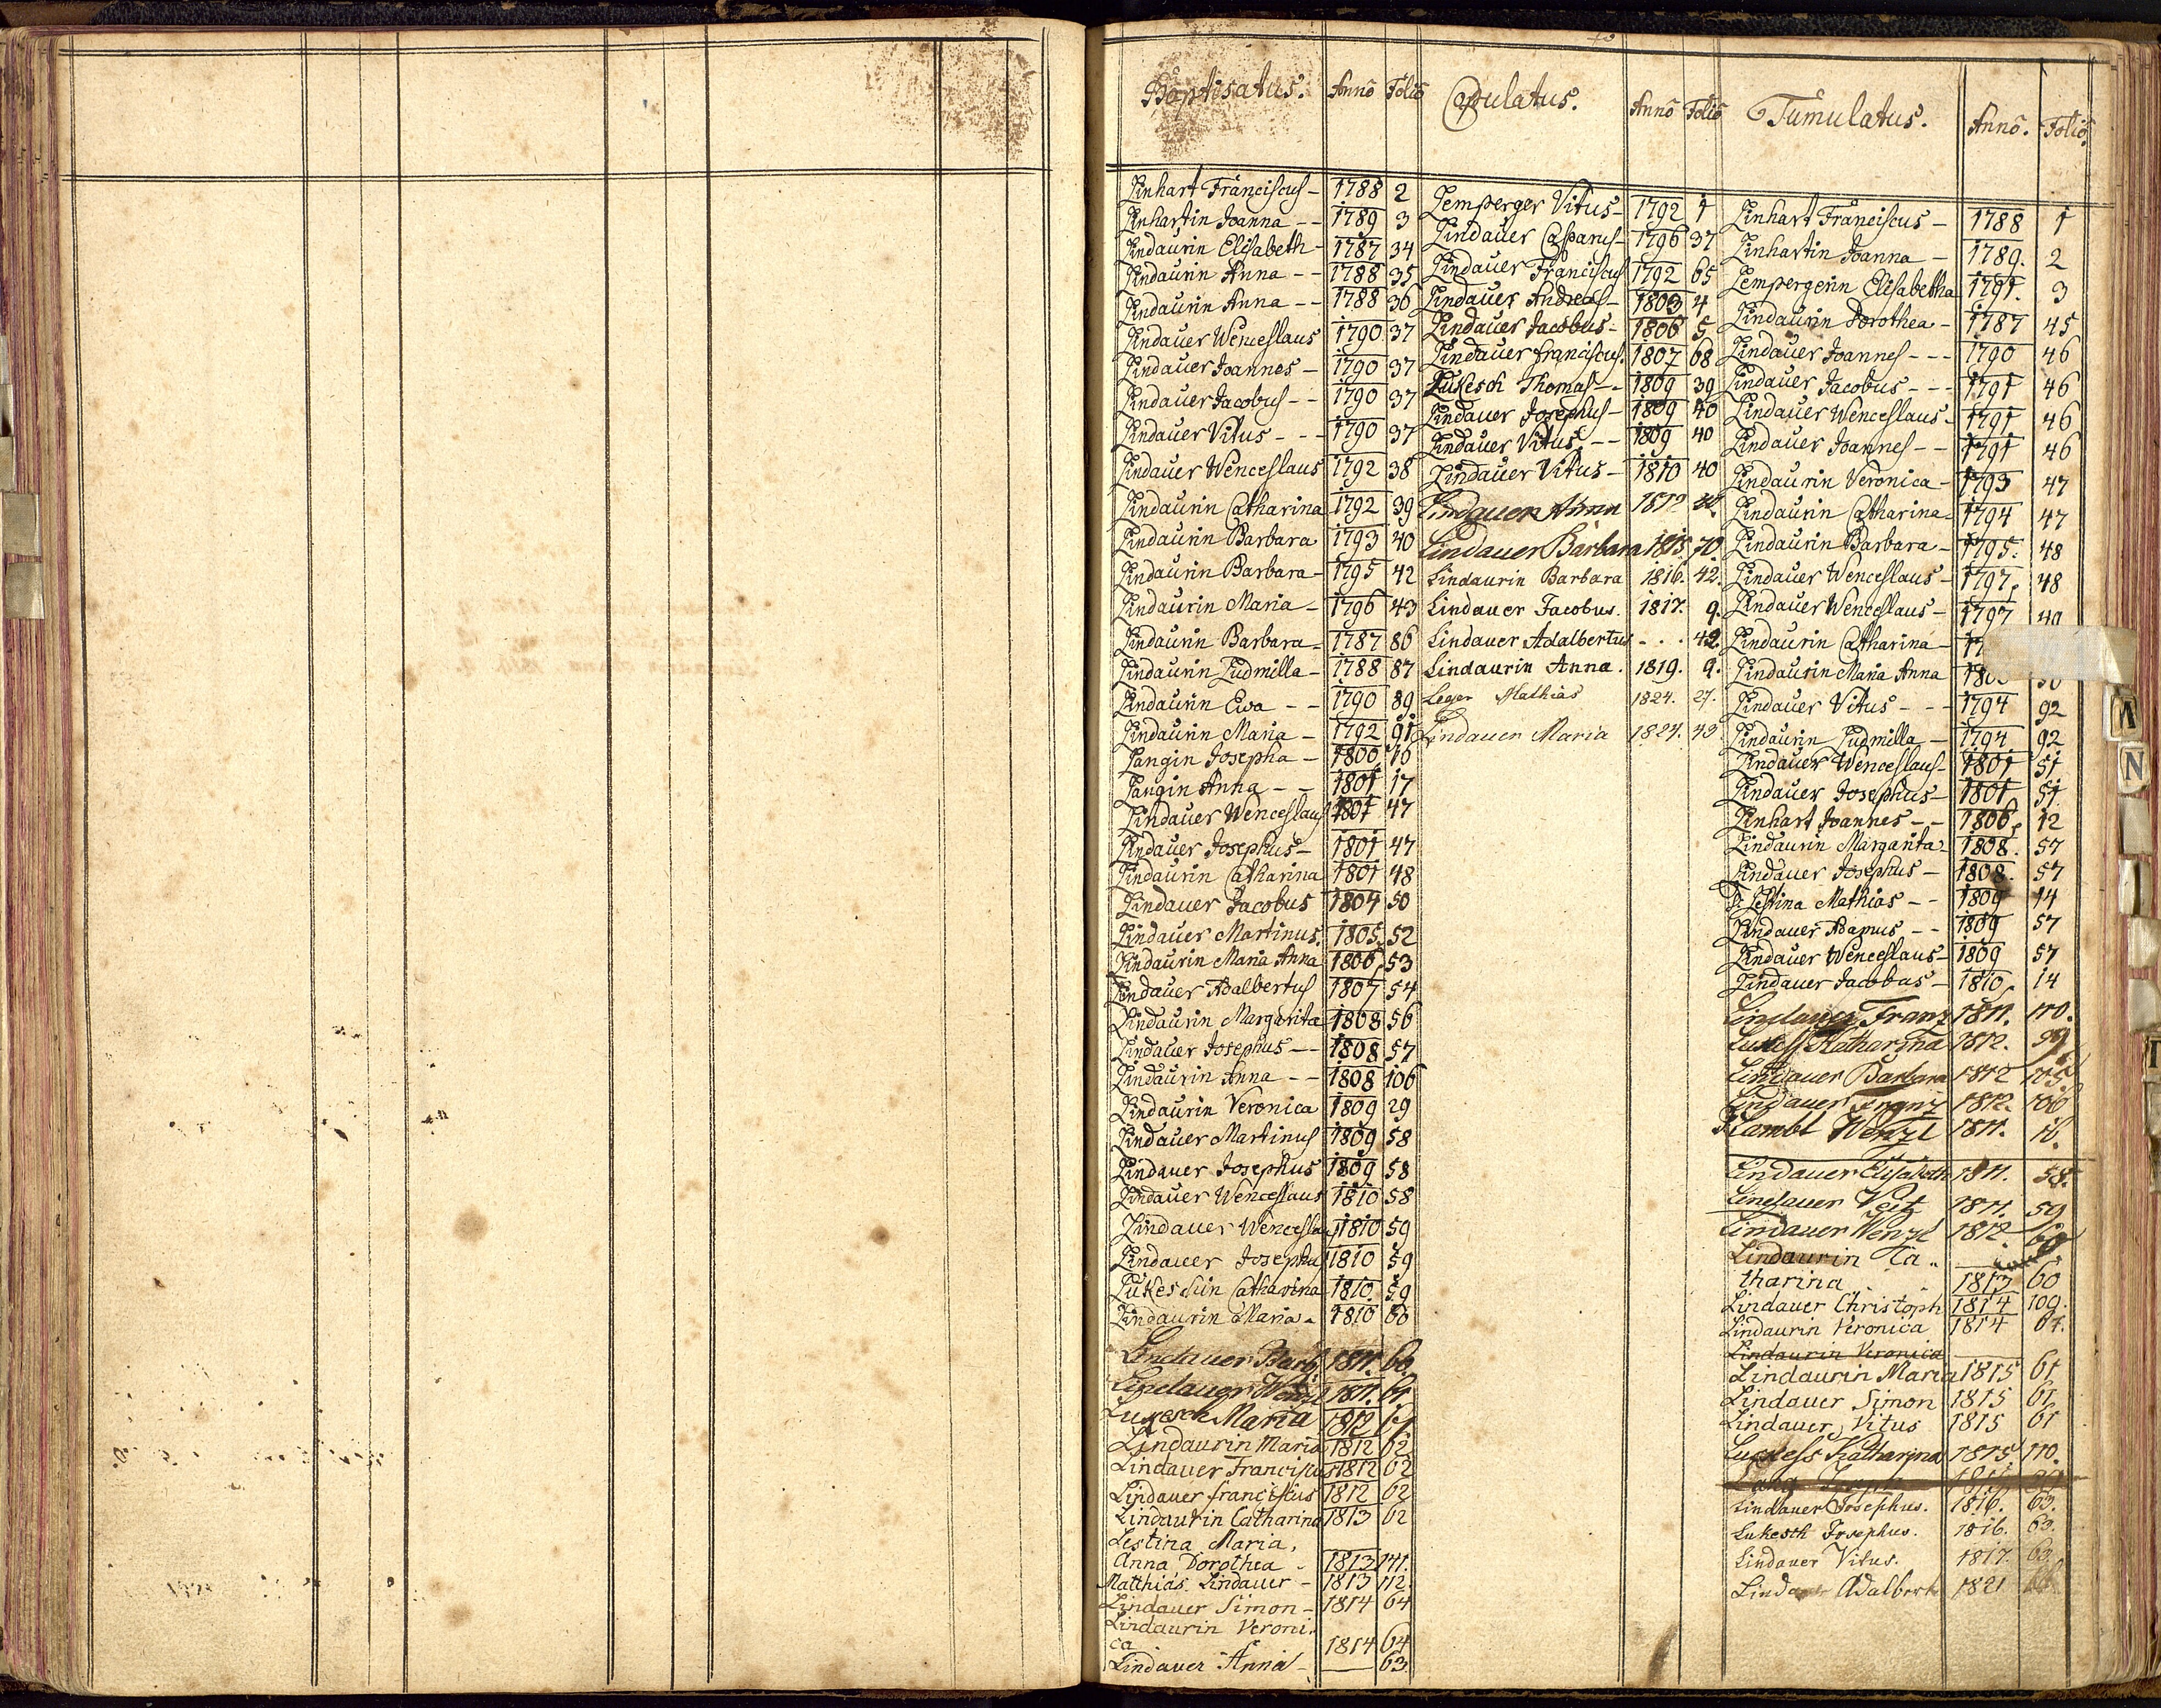 Baptisatus. Anno Folio
Linhart Franciscus - 1788 2
Linhartin Joanna - - 1789 3
Lindaurin Elisabeth - 1787 34
Lindaurin Anna - - 1788 35
Lindaurin Anna - - 1788 36
Lindauer Wenceslaus 1790 37
Lindauer Joannes - 1790 37
Lindauer Jacobus - - 1790 37
Lindauer Vitus - - - 1790 37
Lindauer Wenceslaus 1792 38
Lindaurin Catharina 1792 39
Lindaurin Barbara 1793 40
Lindaurin Barbara - 1795 42
Lindaurin Maria - 1796 43
Lindaurin Barbara - 1787 86
Lindaurin Ludmilla - 1788 87
Lindaurin Ewa - - 1790 89
Lindaurin Maria - 1792 91
Langin Josepha - 1800 16
Langin Anna - - 1801 17
Lindauer Wenceslaus 1801 47
Lindauer Josephus - 1801 47
Lindaurin Catharina 1801 48
Lindauer Jacobus 1804 50
Lindauer Martinus. 1805 52
Lindaurin Maria Anna 1806 53
Lindauer Adalbertus 1807 54
Lindaurin Margarita 1808 56
Lindauer Josephus - - 1808 57
Lindaurin Anna - - 1808 106
Lindaurin Veronica 1809 29
Lindauer Martinus 1809 58
Lindauer Josephus 1809 58
Lindauer Wenceslaus 1810 58
Lindauer Wenceslaus 1810 59
Lindauer Josephus 1810 59
Lukeschin Catharina 1810 59
Lindaurin Maria - 1810 60
Lindauer Barb 1811. 60.
Lindauer Wenzl 1811. 61.
Lukesch Maria 1812 61
Lindaurin Maria 1812 62
Lindauer Franciskus 1812 62
Lindauer franciskus 1812 62
Lindaurin Catharina 1813 62
Lestina Maria,
Anna Dorothea - 1813 141.
Matthias Lindauer - 1813 112.
Lindauer Simon - 1814 64
Lindaurin Veroni.
ca 1814 64
Lindauer Anna - — 63
Copulatus. Anno Folio
Lemperger Vitus - 1792 1
Lindauer Casparus - 1796 37
Lindauer Franciscus 1792 65
Lindauer Andreas - 1803 4
Lindauer Jacobus - 1806 5
Lindauer franciscus. 1807 68
Lukesch Thomas - - 1809 39
Lindauer Josephus - 1809 40
Lindauer Vitus - - 1809 40
Lindauer Vitus - 1810 40
Lindauer Anna 1812
Lindauer Barbara 1815 70.
Lindaurin Barbara 1816. 42.
Lindauer Jacobus. 1817. 9.
Lindauer Adalbertus - . . 42.
Lindaurin Anna. 1819. 9.
Leger Mathias 1824. 27.
Lindauer Maria 1824. 43
Tumulatus. Anno. Folio.
Linhart Franciscus - 1788 1
Linhartin Joanna - 1789. 2
Lempergerin Elisabetha 1791. 3
Lindaurin Dorothea - 1787 45
Lindauer Joannes - - - 1790 46
Lindauer Jacobus - - - 1791 46
Lindauer Wenceslaus - 1791 46
Lindauer Joannes - - 1791 46
Lindaurin Veronica - 1793 47
Lindaurin Catharina - 1794 47
Lindaurin Barbara - 1795. 48
Lindauer Wenceslaus - 1797. 48
Lindauer Wenceslaus - 1797 49
Lindaurin Catharina - 17
Lindaurin Maria Anna 180
Lindauer Vitus - - - 1794 92
Lindaurin Ludmilla - 1794 92
Lindauer Wenceslaus - 1801 51
Lindauer Josephus - 1801 51
Linhart Joannes - - 1806. 12
Lindaurin Margarita - 1808. 57
Lindauer Josephus - 1808. 57
Lestina Mathias - - 1809 14
Lindauer Adamus - - 1809 57
Lindauer Wenceslaus - 1809 57
Lindauer Jacobus - 1810 14
Lindauer Franz 1811. 110.
Lukess Katharina 1812. 99
Lindauer Barbara 1812 105
Lindauer Franz 1812. 106
Wenzl 1811. 16.
Lindauer Elisabeth 1811. 58.
Lindauer Veit 1811. 59
Lindauer Wenzl 1812
Lindaurin Ka ..
tharina 1813 60
Lindauer Christoph 1814 109.
Lindaurin Veronica 1814 61.
Lindaurin Veronica
Lindaurin Maria 1815 61
Lindauer Simon 1815 61
Lindauer, Vitus 1815 61
Luckess Katharina 1815. 110.
Lindauer Josephus. 1816. 63.
Lukesth Josephus. 1816. 63.
Lindauer Vitus. 1817. 63.
Lindauer Adalbert 1821
N